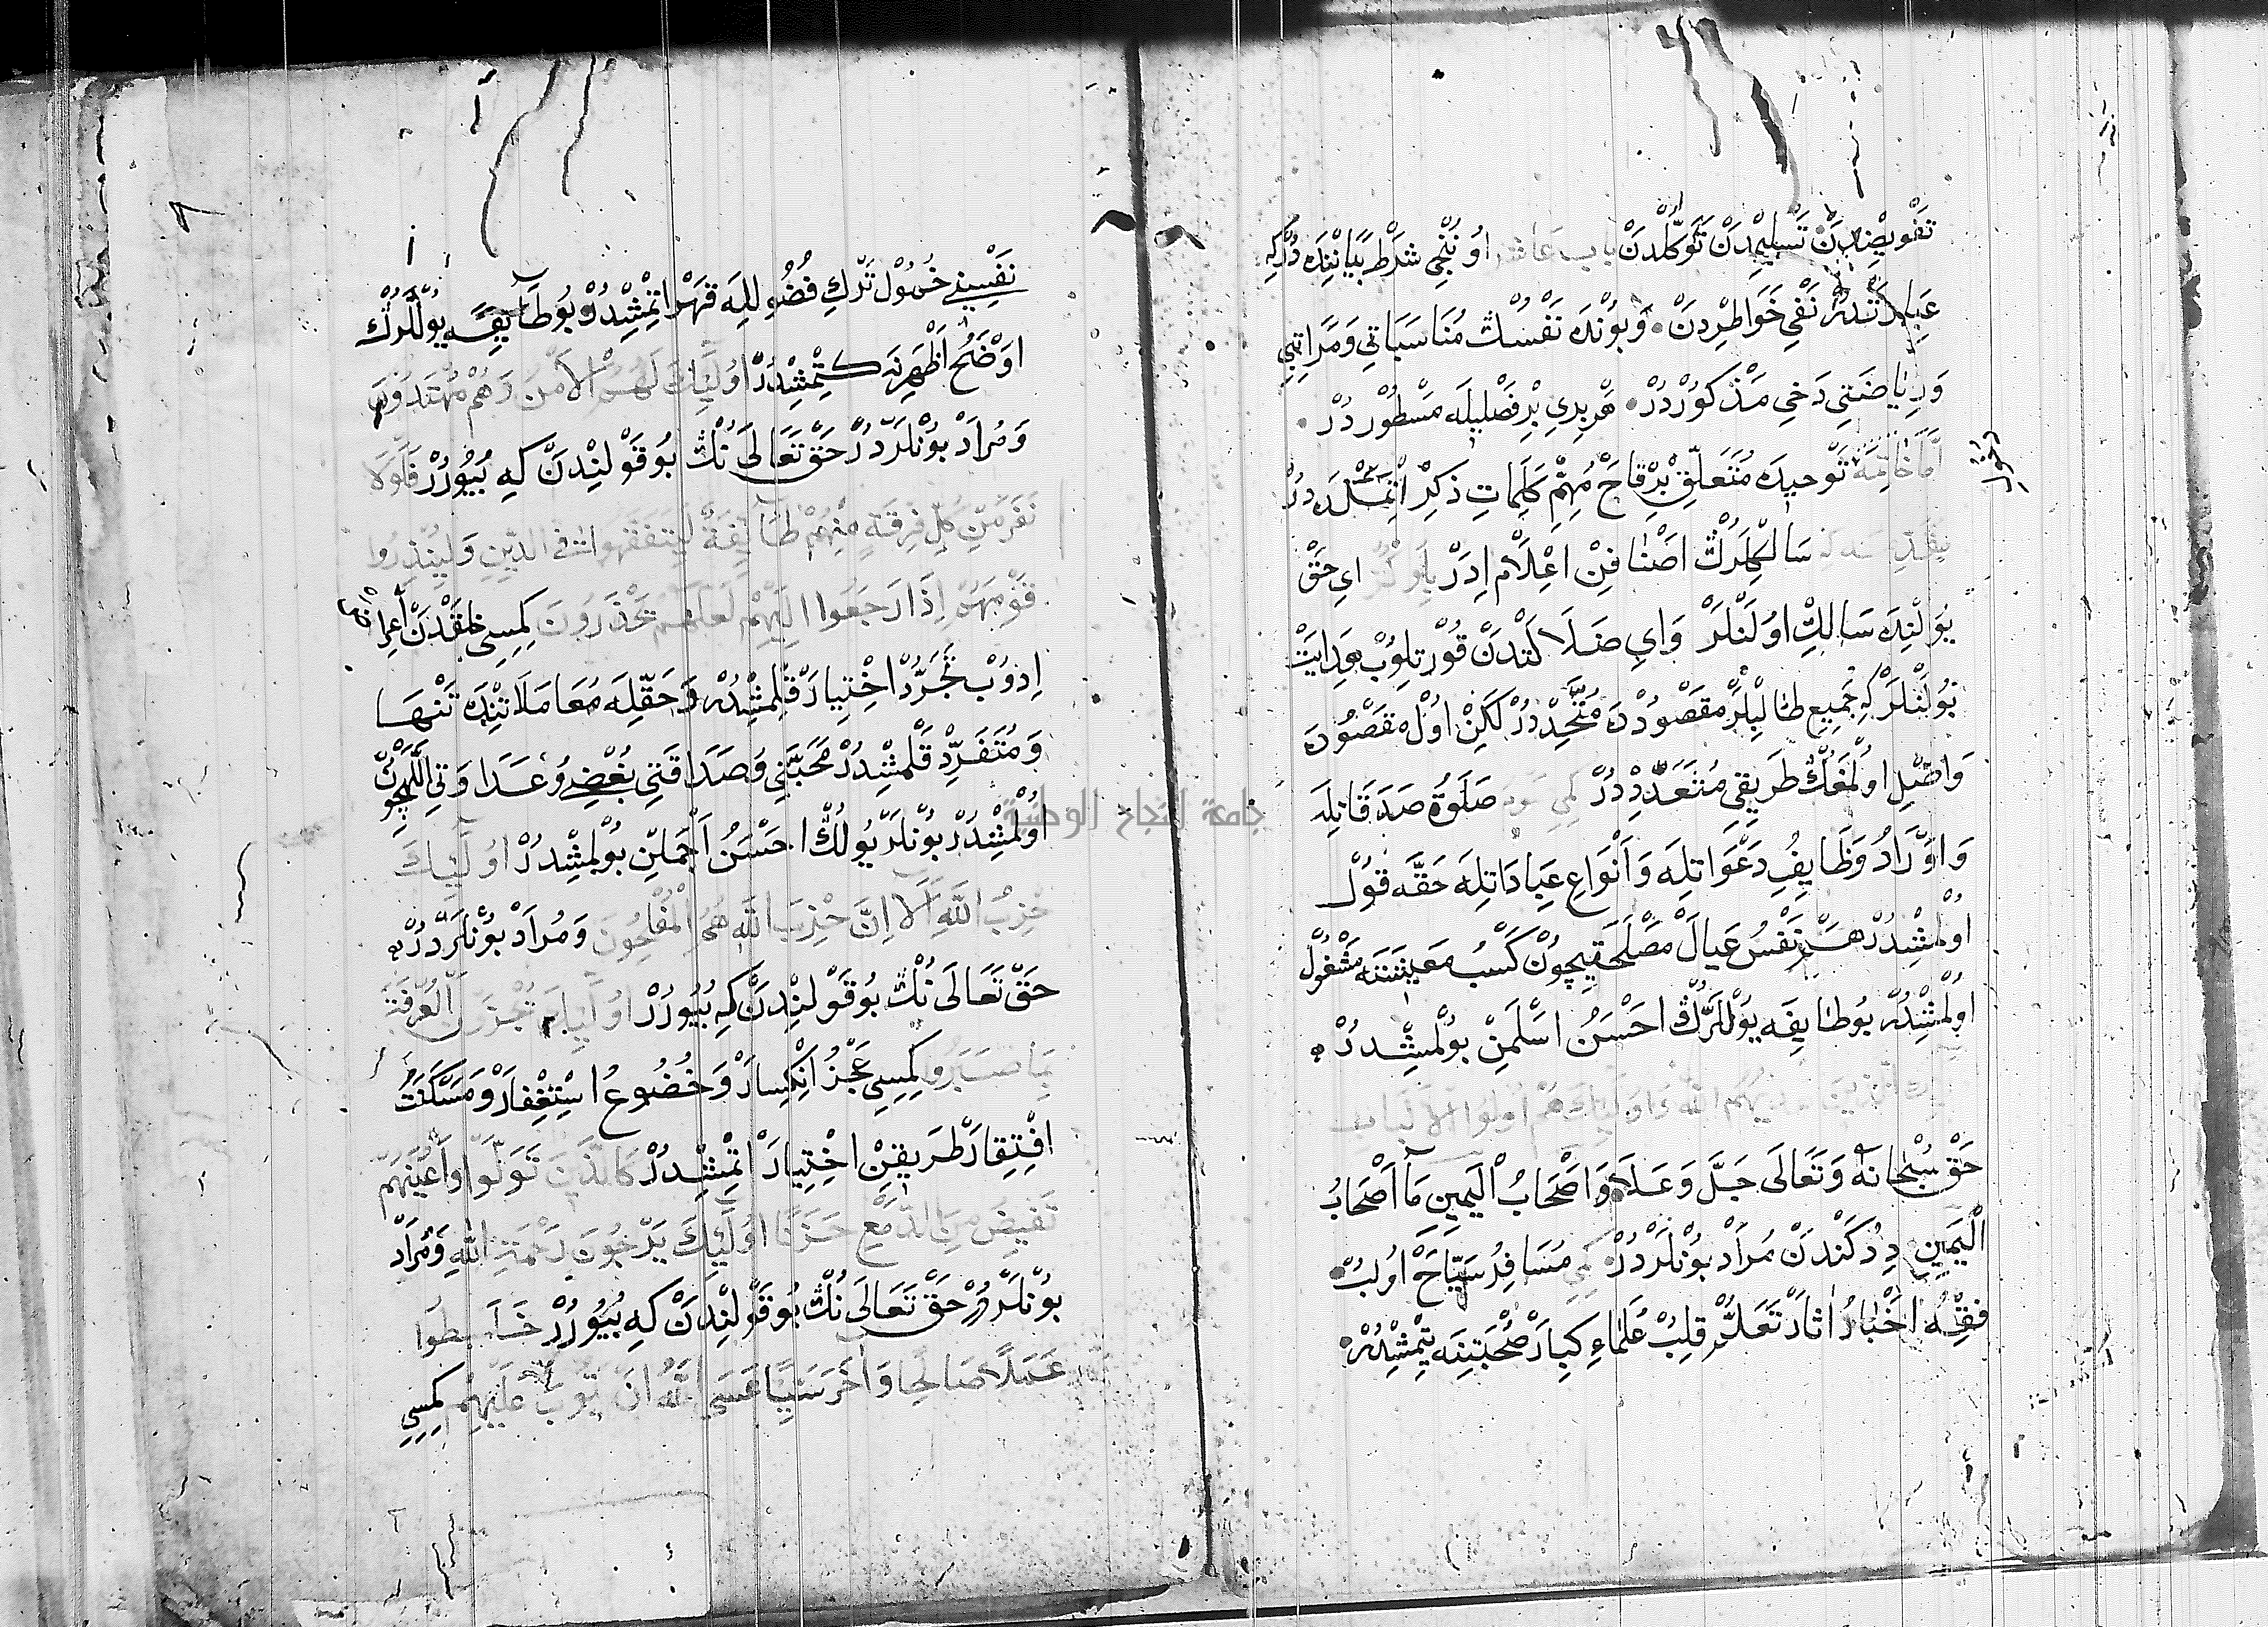 تَفْويضْدَنْ تَسْلِيمْدَنْ تَوَكُّلْدَنْ باب عاشر اوُنُنْجِي شَرْطْ بَيَانِنْدَه دُرْكِه
عِبَارَتْدُرْ نَفْيِ خَوَاطِرْدِنْ وَبُونْدَه نَفْسُكْ مُنَاسَبَاتِي وَمَرَاتِبِي
وَرِيَاضَتِي دَخِي مَذْكُورْدُرْ هَرْ بِرِي بِرْ فَصْلِيلَه مَسْطُورْدُرْ
اَمَّا خَاتِمَه تَوْحِيدَه مُتَعَلِّقْ بِرْ قَاچْ مُهِمْ كَلِمَاتِ ذِكِرْ اِتْمَكْدَه دُرْ
سَالِكْلَرُكْ اَصْنَافِنْ اِعْلَامْ اِدَرْ اي حَقْ
يُولِنْدَه سَالِكْ اوُلَنْلَرْ وَاي ضَلَالَتْدَنْ قُورْتِلُوبْ هِدَايَتْ
بُولَنْلَرْ كِه جَمِيعِ طَالِبْلَرْ مَقْصُودْدَه مُتَّحِدْدُرْ لَكِنْ اوُلْ مَقْصُودَه
وَاصِلْ اوُلْمَغُكْ طَرِيقِي مُتَعَدِّدْدُرْ كِمِسِي صَلَوةُ صَدَقَاتِلَه
وَاوْرَادُ وَظَايِفُ دَعَوَاتِلَه وَاَنْوَاعِ عِبَادَاتِلَه حَقَّه قُولْ
اوُلْمِشْدُرْ هَمْ نَفْسُ عَيَالْ مَصْلَحَتِيچُونْ كَسْبُ مَعِيشَتَه مَشْغُولْ
اوُلْمِشْدُرْ بُو طَايِفَه يُولْلَرُكْ اَحْسَنُ اَسْلَمِنْ بُولْمِشْدُرْ
الَّذِينَ هَدَيهُمُ اللّٰه وَاُولَئِكَ هُمْ اُولُوا الْاَلْبَاب
حَقْ سُبْحَانَهُ وَتَعَالَى جَلَّ وَعَلَا وَاَصْحَابُ الْيَمِينِ مَا اَصْحَابُ
الْيَمِينِ دِدُكَنْدَنْ مُرَادْ بُونْلَرْدُرْ كِمِسِي مُسَافِرُ سَيَّاحْ اوُلُبْ
فِقْهُ اَخْبَارُ اٰثَارْ تَعَلُّمْ قِلِبْ عُلَمَاءِ كِبَارْ صُحْبَتِنَه يِتْمِشْدُرْ
نَفْسِنِي خُمُولْ تَرْكِ فُضُولِلَه قَهْر اِتْمِشْدُرْ بُو طَايِفَه يُولْلَرُكْ
اَوْضَحُ اَظْهَرِنَه كِتْمِشْدُرْ اُولَئِكَ لَهُمُ الْاَمْنُ وَهُمْ مُهْتَدُونَ
وَمُرَادْ بُونْلَرْدُرْ حَقْ تَعَالَى نُكْ بُو قَوْلِنْدَنْ كِه بُيُورُرْ فَلَوْلَا
نَفَرَ مِنْ كُلِّ فِرْقَةٍ مِنْهُمْ طَائِفَةٌ لِيَتَفَقَّهُوا فِي الدِّينِ وَلِيُنْذِرُوا
قَوْمَهُمْ اِذَا رَجَعُوا اِلَيْهِمْ لَعَلَّهُمْ يَحْذَرُونَ كِمِسِي خَلْقْدَنْ اِعْرَاض
اِدُوبْ تَجَرُّدْ اِخْتِيَارْ قِلْمِشْدُرْ وَحَقِّلَه مُعَامَلَاتِنْدَه تَنْهَا
وَمُتَفَرِّدْ قَلْمِشْدُرْ مَحَبَّتِي وَصَدَاقَتِي بُغْضِي وُعَدَاوَتِي اللّٰهيچُونْ
اوُلْمِشْدُرْ بُونْلَرْ يُولُكْ اَحْسَنُ اَجْمَلِنْ بُولْمِشْدُرْ اُولَئِكَ
حِزْبُ اللّٰهِ اَلَا اِنَّ حِزْبَ اللّٰهِ هُمُ الْمُفْلِحُونَ وَمُرَادْ بُونْلَرْدُرْ
حَقْ تَعَالَى نُكْ بُو قَوْلِنْدَنْ كِه بُيُورُرْ اُولَئِكَ يُجْزَوْنَ الْغُرْفَةَ
بِمَا صَبَرُوا كِمِسِي عَجْزُ اِنْكِسَارْ وَخُضُوعُ اِسْتِغْفَارْ وَمَسْكَنَتْ
اِفْتِقَارْ طَرِيقِنْ اِخْتِيَارْ اِتْمِشْدُرْ كَالَّذِينَ تَوَلَّوْا وَاَعْيُنُهُمْ
تَفِيضُ مِنَ الدَّمْعِ حَزَنًا اُولَئِكَ يَرْجُونَ رَحْمَةَ اللّٰهِ وَمُرَادْ
بُونْلَرْدُرْ حَقْ تَعَالَى نُكْ بُو قَوْلِنْدَنْ كِه بُيُورُرْ خَلَطُوا
عَمَلًا صَالِحًا وَاٰخَرَ سَيِّئًا عَسَى اللّٰهُ اَنْ يَتُوبَ عَلَيْهِمْ كِمِسِي
جامعة النجاح الوطنية